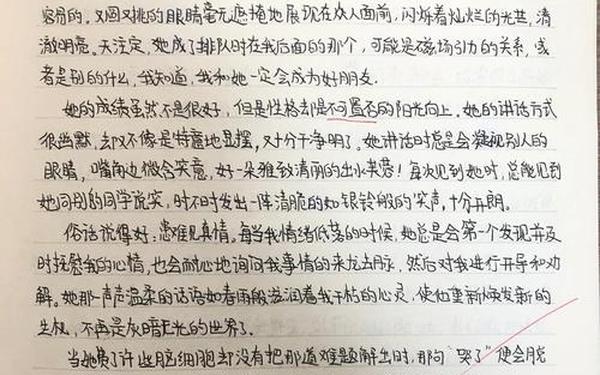 容易的。又圆又挑的眼睛毫无遮掩地展现在众人面前，闪烁着灿烂的光芒，清
澈明亮。天注定，她成了排队时在我后面的那个，可能是磁场引力的关系，或
者是别的什么，我知道，我和她一定会成为好朋友．
她的成绩虽然不是很好，但是性格却是不可置否的阳光向上。她的讲话方式
很幽默，却又不像是特意地显摆，又十分干净明了。她讲话时总是会凝视别人的
眼睛，嘴角边微含笑意，好一朵雅致清丽的出水芙蓉！每次见到她时，总能见到
她同别的同学说笑，时不时发出一阵清脆的如银铃般的笑声，十分开朗。
俗话说得好：患难见真情。每当我情绪低落的时候，她总是会第一个发现并及
时抚慰我的心情，也会耐心地询问我事情的来龙去脉，然后对我进行开导和劝
解。她那一声声温柔的话语如春雨般滋润着我干枯的心灵，使他重新焕发新的
生机，不再是灰暗无光的世界了．
当她费了许些脑细胞却没有把那道难题解出时，那句“哭了”便会脱